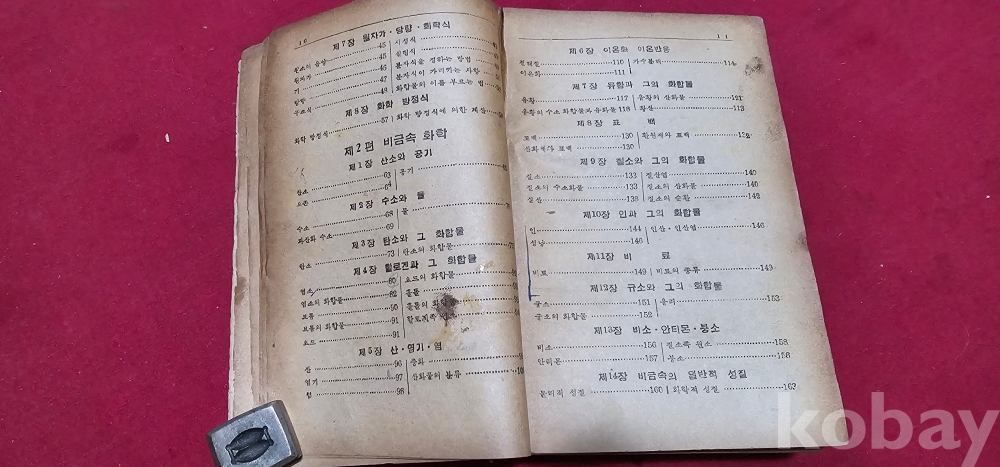 10
제7장 원자가·당량·화학식
원소의 음양 45 시성식
원자가 45 실험식
기 46 분자식을 정하는 방법
당량 47 분자식이 가리키는 사항
48 화합물의 이름 부르는 법
제8장 화학 방정식
화학 방정식 57 화학 방정식에 의한 계산
제2편 비금속 화학
제1장 산소와 공기
산소 63 공기
오존 64
제2장 수소와 물
수소 68 물
과산화 수소 69
제3장 탄소와 그 화합물
탄소 73 탄소의 화합물
제4장 할로겐과 그 화합물
염소 80 요드의 화합물
염소의 화합물 82 플룰
브롬 90
브롬의 화합물 91
요드 91
제5장 산·염기·염
산 96 중화
염기 97 산화물의 분류
염 98
11
제6장 이온화 이온반응
전해질 110 가수분해 114
이온화 111
제7장 유황과 그의 화합물
유황 117 유황의 산화물 121
유황의 수소 화합물과 유화물 118 황산
제8장 표 백
표백 130 환원제와 표백
산화제와 표백 130
제9장 질소와 그의 화합물
질소 133 질산염 140
질소의 수소화물 133 질소의 산화물 140
질산 138 질소의 순환 142
제10장 인과 그의 화합물
인 144 인산·인산염 146
성냥 146
제11장 비 료
비료 149 비료의 종류 149
제12장 규소와 그의 화합물
규소 151 유리 153
규소의 화합물 152
제13장 비소·안티몬·붕소
비소 156 질소족 원소 158
안티몬 157 붕소 158
제14장 비금속의 일반적 성질
물리적 성질 160 화학적 성질 162
kobay